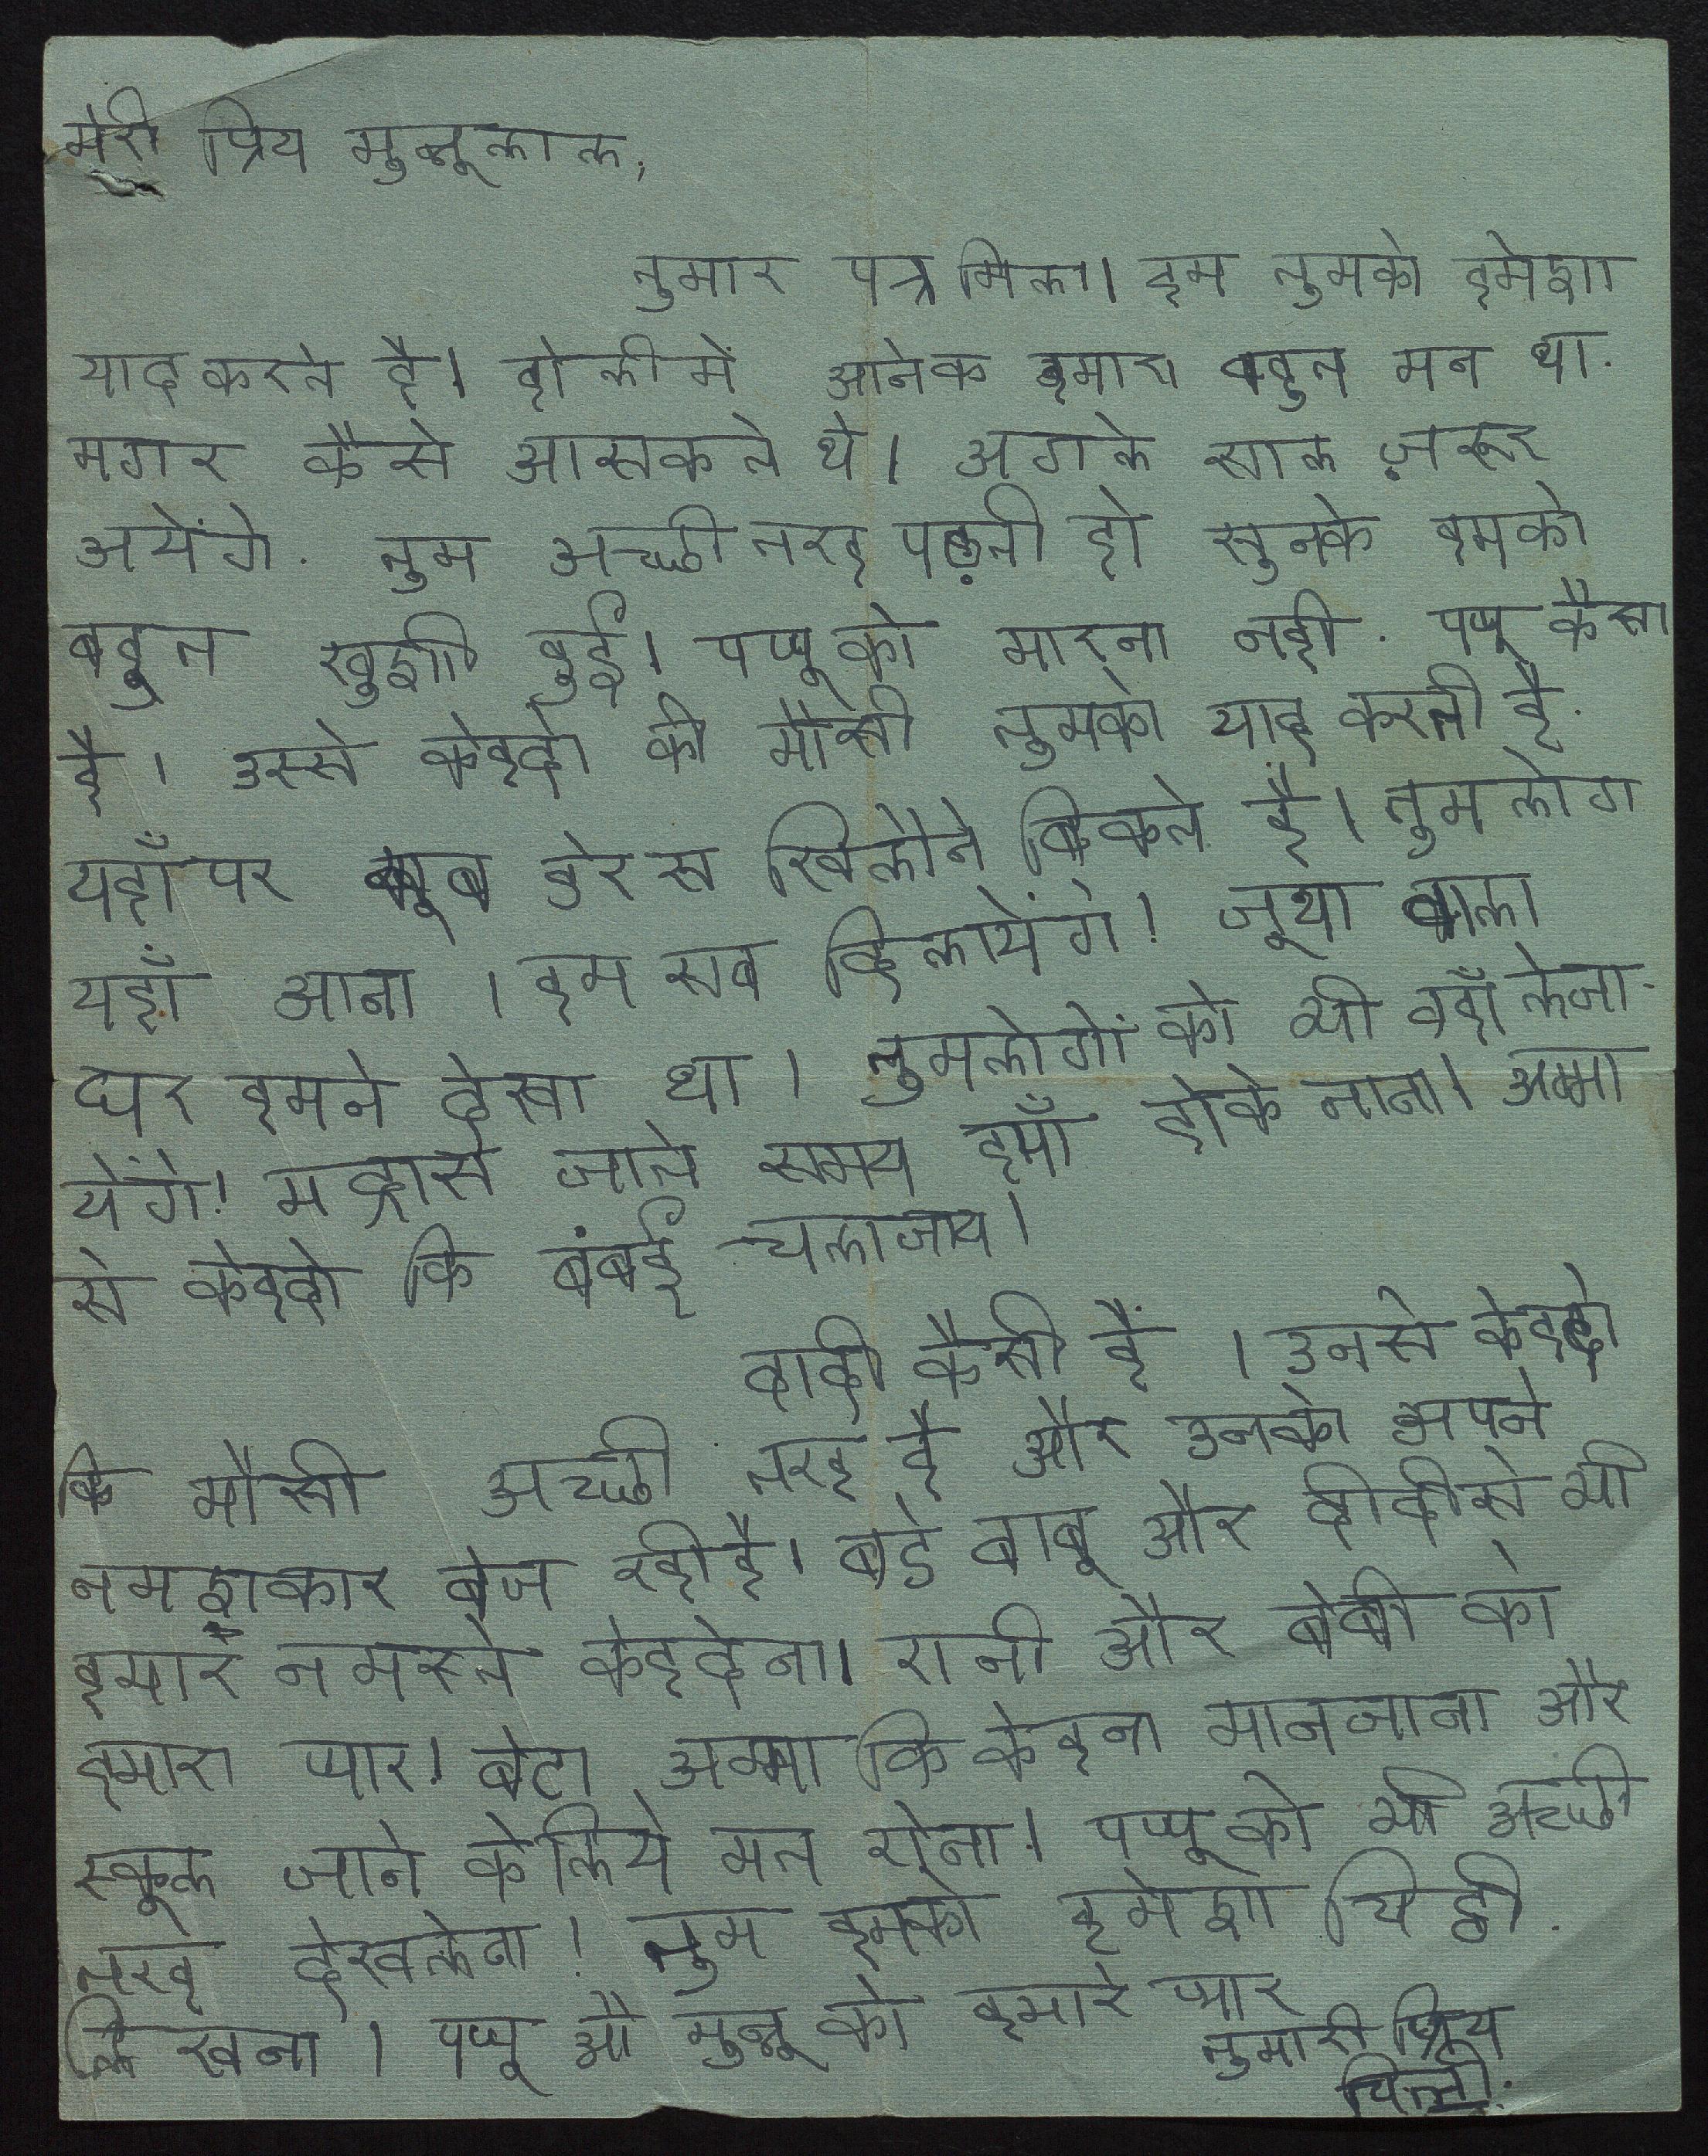 मेरी प्रिय मुन्नूलाल,
तुमार पत्र मिला। हम तुमको हमेशा
याद करते है। होली में आनेक हमारा बहुत मन था.
मगर कैसे आसकते थे। अगले साल ज़रूर
अयेंगे. तुम अच्छी तरह पढ़ती हो सुनके हमको
बहुत खुशी हुई। पप्पू को मारना नही. पप्पू कैसा
है। उस्से केहदो की मौसी तुमको याद करती है.
यहाँ पर खूब डेर स खिलौने बिकते है। तुम लोग
यहाँ आना। हम सब दिलायेंगे! जूथा वाला
घर हमने देखा था। तुमलोगों को भी वहाँ लेजा-
येंगे! मद्रासे जाते समय हयाँ होके जाना। अम्मा
से केहदो कि बंबई चलाजाय।
दादी कैसी हैं। उनसे केहदो
कि मौसी अच्छी तरह है और उनको अपने
नमशकार बेज रही है। बडे बाबू और दीदीसे भी
हमारे नमस्ते केहदेना। रानी और बेबी को
हमारा प्यार! बेटा अम्मा कि केहना मानजाना और
स्कूल जाने केलिये मत रोना। पप्पू को भी अच्छी
तरह देखलेना! तुम हमको हमेशा चिट्ठी
लिखना। पप्पू औ मुन्नू को हमारे प्यार
तुमारी प्रिय
चिन्नी.